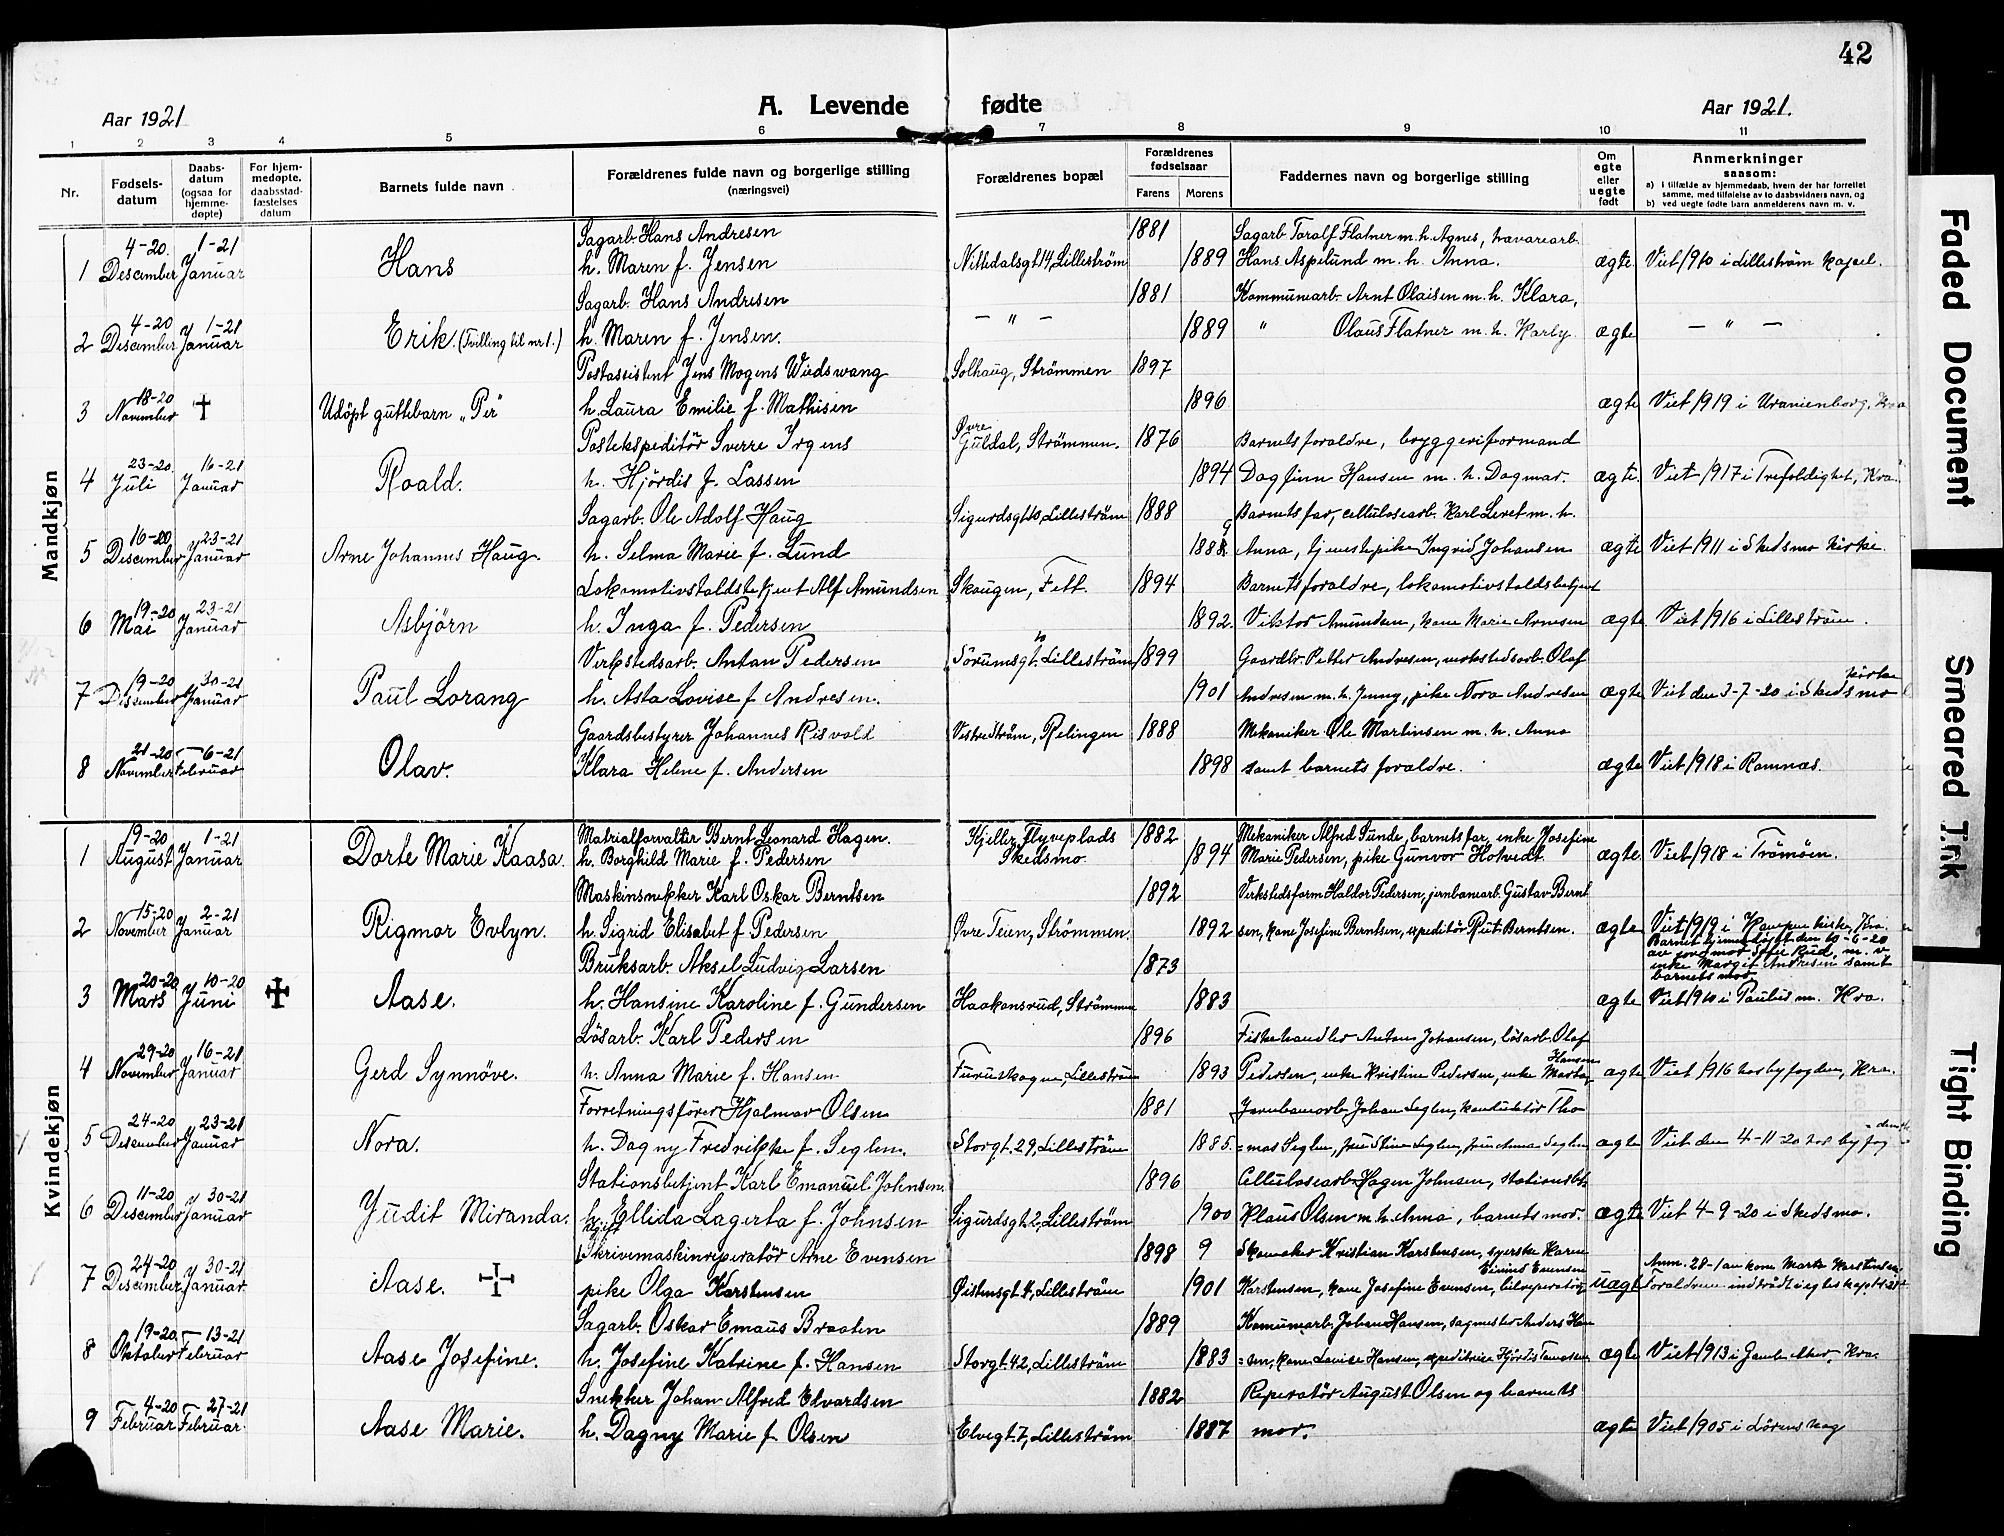 42
Aar 1921
A. Levende fødte
Aar 1921.
1 2 3 4 5 6 7 8 9 10 11
Nr.
Fødsels-datum
Daabs-datum (ogsaa for hjemme-døpte)
For hjem-medøpte, daabsstad-fæstelses datum
Barnets fulde navn
Forældrenes fulde navn og borgerlige stilling (næringsvei)
Forældrenes bopæl
Forældrenes fødselsaar
Farens Morens
Faddernes navn og borgerlige stilling
Om egte eller uegte født
Anmerkninger saasom:
a) i tilfælde av hjemmedaab, hvem der har forrettet samme, med tilføielse av to daabsvidners navn, og
b) ved uegte fødte barn anmelderens navn m. v.
Mandkjøn
4-20. 1-21 Sagarb. Hans Andresen 1881 Sagarb. Toralf Flatner m. h. Agnes, travarearb.
1 Desember Januar Hans h. Maren f. Jensen Nittedalsgt 14, Lilleström 1889 Hans Aspelund m. h. Anna. ægte Viet 1910 i Lilleström kapel.
4-20 1-21 Sagarb. Hans Andresen 1881 Kommunearb. Arnt Olaisen m. h. Klara,
2 Desember Januar Erik. (Tvilling til nr 1.) h. Maren f. Jensen. — " — 1889 " Olaus Flatner m. h. Karly ægte — " —
18-20 Postassistent Jens Mogens Wiedswang Solhaug, Strömmen 1897
3 November † Udöpt guttebarn „Per" h. Laura Emilie f. Mathisen 1896 ægte Viet 1919 i Uranienborg, Kra
23-20. 16-21 Postekspeditör Sverre Irgens Övre Guldal, Strömmen. 1876 Barnets foraldre, bryggeriformand
4 Juli Januar Roald. h. Hjördis f. Lassen 1894 Dagfinn Hansen m. h. Dagmar. ægte. Viet 1917 i Trefoldighet, Kra.
16-20 23-21 Sagarb. Ole Adolf Haug Sigurdsgt 10, Lilleström 1888 Barnets far, cellulosearb. Karl Leret m. h.
5 Desember Januar Arne Johannes Haug. h. Selma Marie f. Lund 1888 Anna, tjenestepike Ingrid Johansen ægte Viet 1911 i Skedsmo kirke.
19-20 23-21 Lokomotivstaldsbetjent Alf Amundsen Skaugen, Fett. 1894 Barnets foraldre, lokomotivstaldsbetjent
6 Mai Januar Asbjörn h. Inga f. Pedersen 1892. Viktor Amundsen, kone Marie Arnesen ægte Viet 1916 i Lilleström.
19-20 30-21 Verkstedsarb. Anton Pedersen Sörumsgt. 10 Lilleström 1899 Gaardbr. Petter Andresen, verkstedsarb. Olaf
7 Desember Januar Paul Lorang h. Asta Lovise f. Andresen. 1901 Andresen m. h. Jenny, pike Nora Andresen ægte Viet den 3-7-20 i Skedsmo kirke
21-20 6-21 Gaardsbestyrer Johannes Risvold Vestreström, Relingen 1888 Mekaniker Ole Martinsen m. h. Anna
8 November Februar Olav. Klara Helene f. Andersen 1898 samt barnets foraldre. ægte Viet 1918 i Ramnæs.
Kvindekjøn
19-20 1-21 Matrialforvalter Bernt Leonard Hagen. Kjeller Flyveplads 1882 Mekaniker Alfred Sunde, barnets far, enke Josefine
1 August Januar Dorte Marie Kaasa. h. Borghild Marie f. Pedersen Skedsmo. 1894 Marie Pedersen, pike Gunvor Hotvedt ægte. Viet 1918 i Tromöen.
15-20 2-21 Maskinsnekker Karl Oskar Berntsen 1892 Verkstedsform Haldor Pedersen, jernbanearb. Gustav Bernt
2 November Januar Rigmor Evlyn. h. Sigrid Elisabet f. Pedersen Övre Teien, Strömmen. 1892 sen, kone Josefine Berntsen, expeditör Rut Berntsen. ægte Viet 1919 i Kampen kirke, Kra.
20-20 10-20 Bruksarb. Aksel Ludvig Larsen 1873 Barnet hjemmedöpt den 10-6-20 av jordmor Sofie Rud, m. v. enke Margit Andresen samt barnets mor
3 Mars Juni Aase. h. Hansine Karoline f. Gundersen Haakonsrud, Strömmen 1883 ægte Viet 1910 i Paulus m. Kra.
29-20 16-21 Lösarb. Karl Pedersen 1896 Fiskehandler Anton Johansen, lösarb. Olaf
4 November Januar Gerd Synnöve. h. Anna Marie f. Hansen Furuskogen, Lilleström 1893 Pedersen, enke Kristine Pedersen, enke Marta Hansen ægte Viet 1916 hos byfogden, Kra.
24-20 23-21 Forretningsförer Hjalmar Olsen 1881 Jernbanearb. Johan Seglen, konduktör Tho
5 Desember Januar Nora. h. Dagny Fredrikke f. Seglen. Storgt. 29, Lilleström 1885. =mas Seglen, fru Stina Seglen, fru Anna Seglen ægte Viet den 4-11-20 hos byfog=den
11-20 30-21 Stationsbetjent Karl Emanuel Johnsen. 1896 Cellulosearb. Hagen Johnsen, stationsbtj.
6 Desember Januar Judit Miranda. h. Ellida Lagerta f. Johnsen Sigurdsgt 2, Lilleström 1900 Klaus Olsen m. h. Anna, barnets mor. ægte Viet 4-9-20 i Skedsmo.
24-20 30-21 ugift Skrivemaskinreperatör Arne Evensen 1898 9 Skomaker Kristian Karstensen, syerske Karen Anm. 28-1 av kone Marta Karstensen.
7 Desember Januar Aase. pike Olga Karstensen Öistensgt 4, Lilleström 1901 Karstensen, kone Josefine Evensen, bilreperatör Einius Evensen uægt Foraldrene indtrådt i egteskap
19-20 13-21 Sagarb. Oskar Emaus Braaten 1889 Komunearb. Johan Hansen, sagmester Anders Han
8 Oktober Februar Aase Josefine. h. Josefine Katrine f. Hansen Storgt. 42, Lilleström 1883 =sen, kone Lovise Hansen, expeditrise Hjördis ægte Viet 1913 i Gamle Aker, Kra.
4-20 27-21 Snekker Johan Alfred Edvardsen 1882 Reperatör August Olsen og barnets
9 Februar Februar. Aase Marie. h. Dagny Marie f. Olsen Elvegt. 7, Lilleström 1887 mor. ægte Viet 1905 i Lörenskog
Faded Document
Smeared Ink
Tight Binding